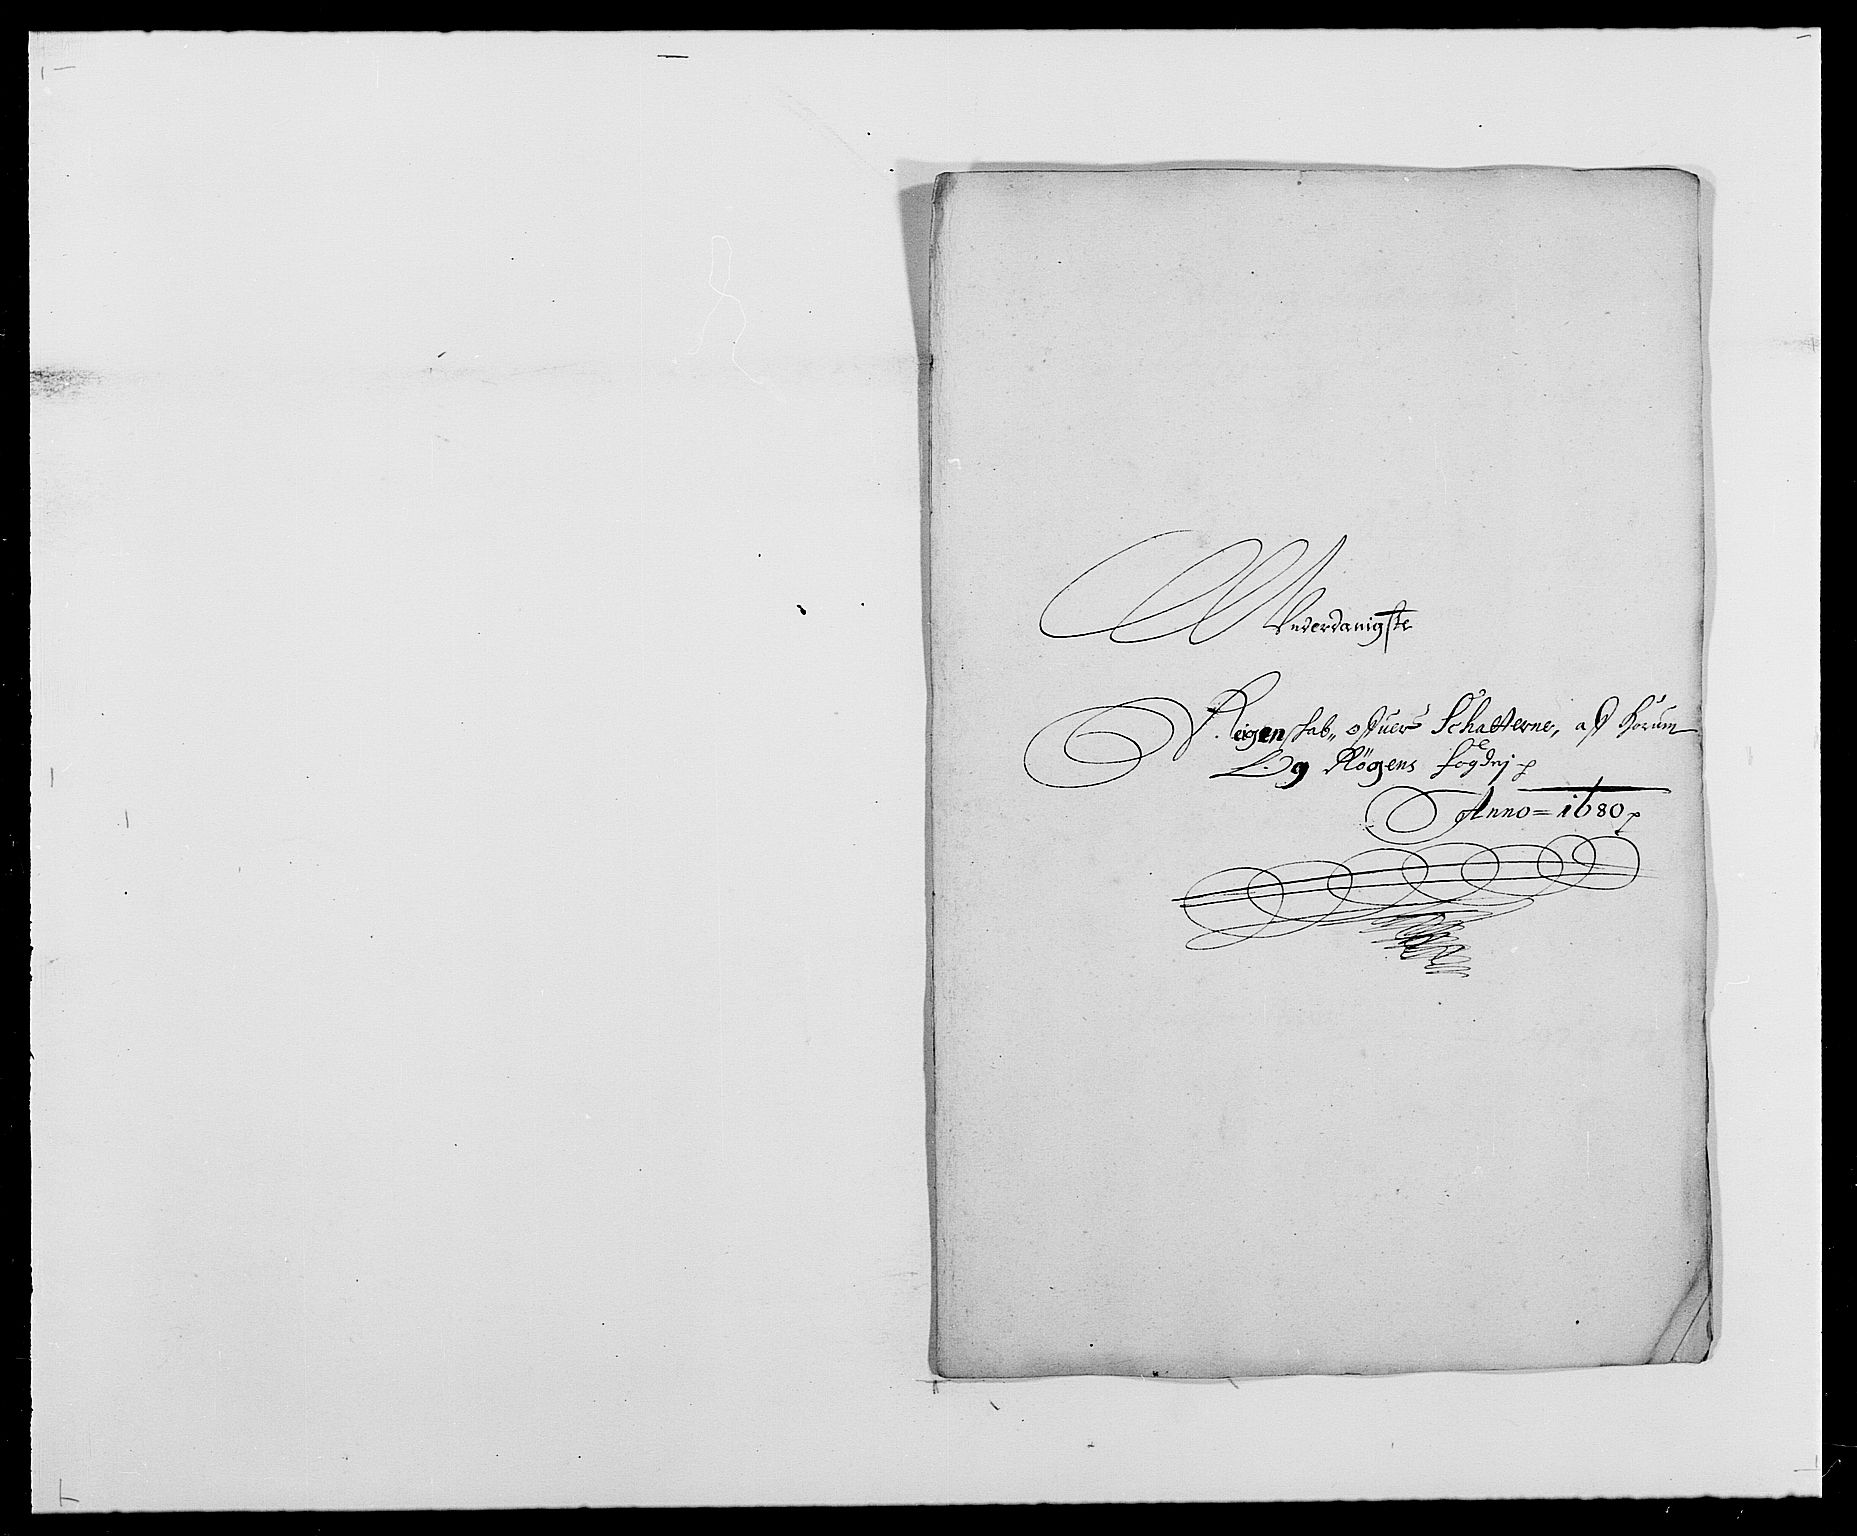 Vnderdanigste
Reigenskab,, offuer Schatterne, aff Horum
Og Røgens fogdrj p
Anno = 1680 p